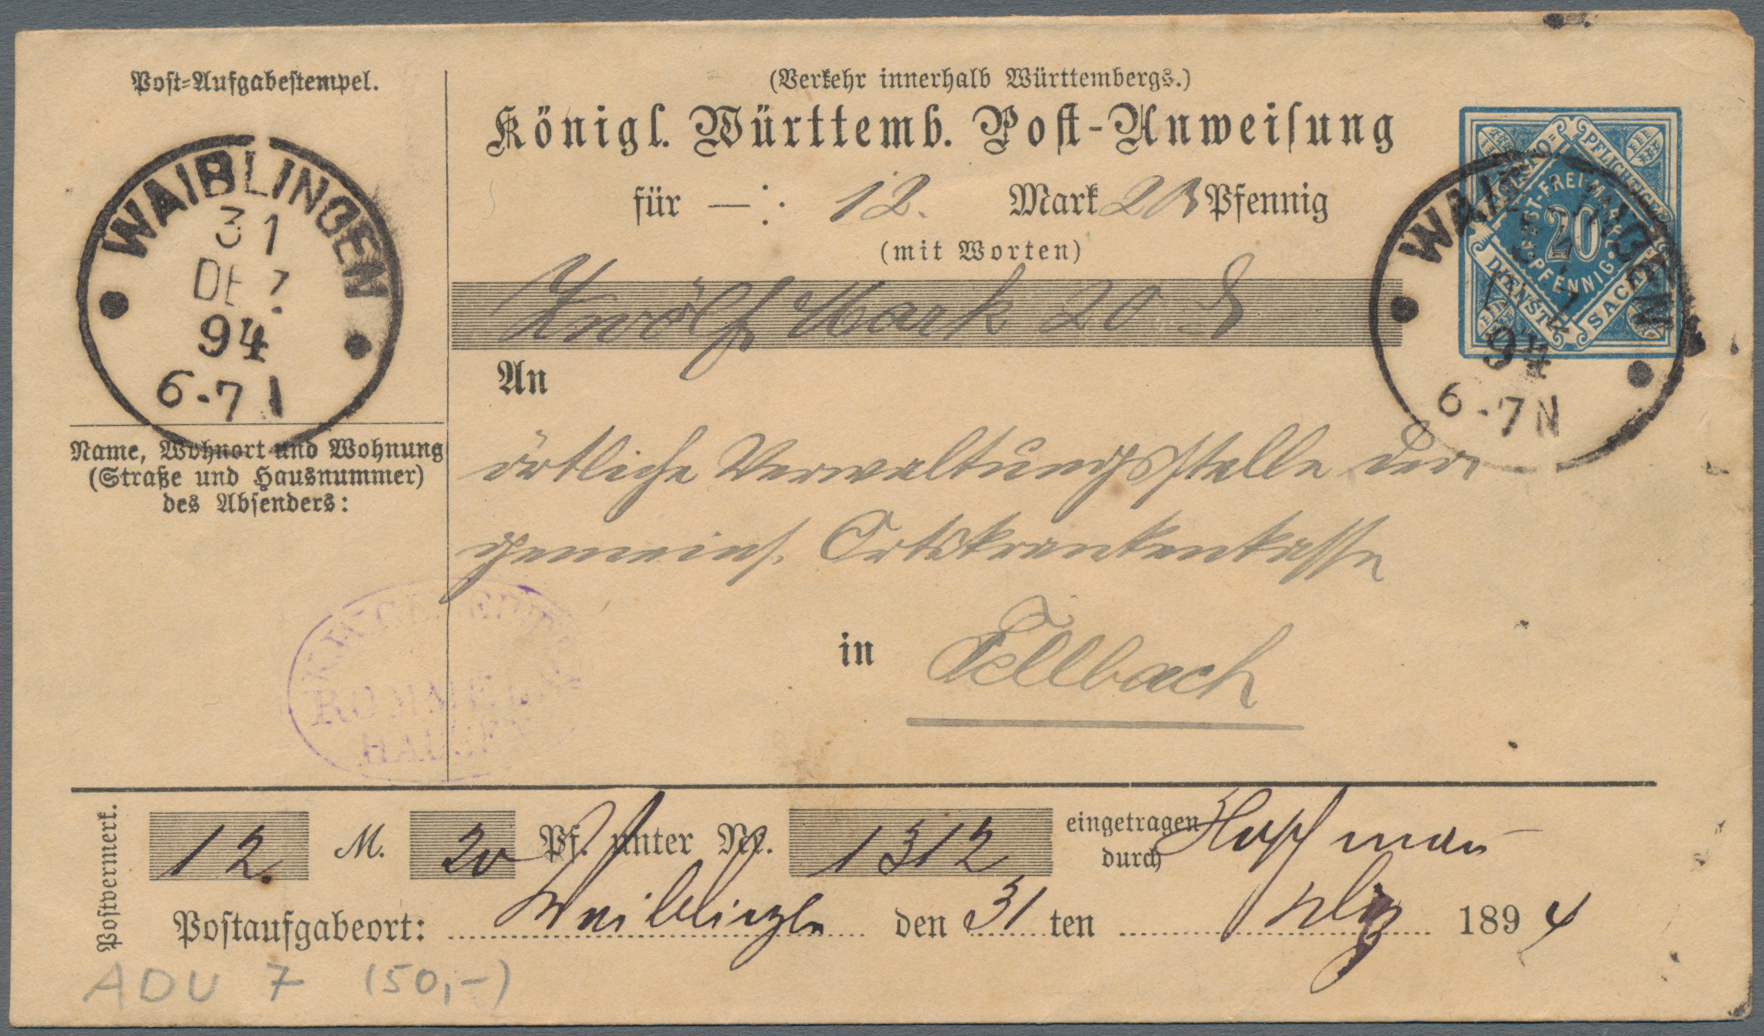 Post-Aufgabestempel.
WAIBLINGEN
31
DEZ.
94
6-7
Name, Wohnort und Wohnung
(Straße und Hausnummer)
des Absenders:
ROMMELS
HAUSEN
(Verkehr innerhalb Württembergs.)
Königl. Württemb. Post-Anweisung
für —: 12. Mark 20 Pfennig
(mit Worten)
Zwölf Mark 20 ₰
PFLICHTIGE
DIENST SACHE
POST-FREIMARKE
20
PFENNIG
WAIBLINGEN
94
6-7N
An
örtliche Verwaltungsstelle der
gemeins. Ortskrankenkasse
in Fellbach
Postvermerk.
12. M. 20 Pf. unter Nr. 1312 eingetragen durch
Postaufgabeort: Waiblingen den 31 ten Dez 1894
ADU 7 (50,-)